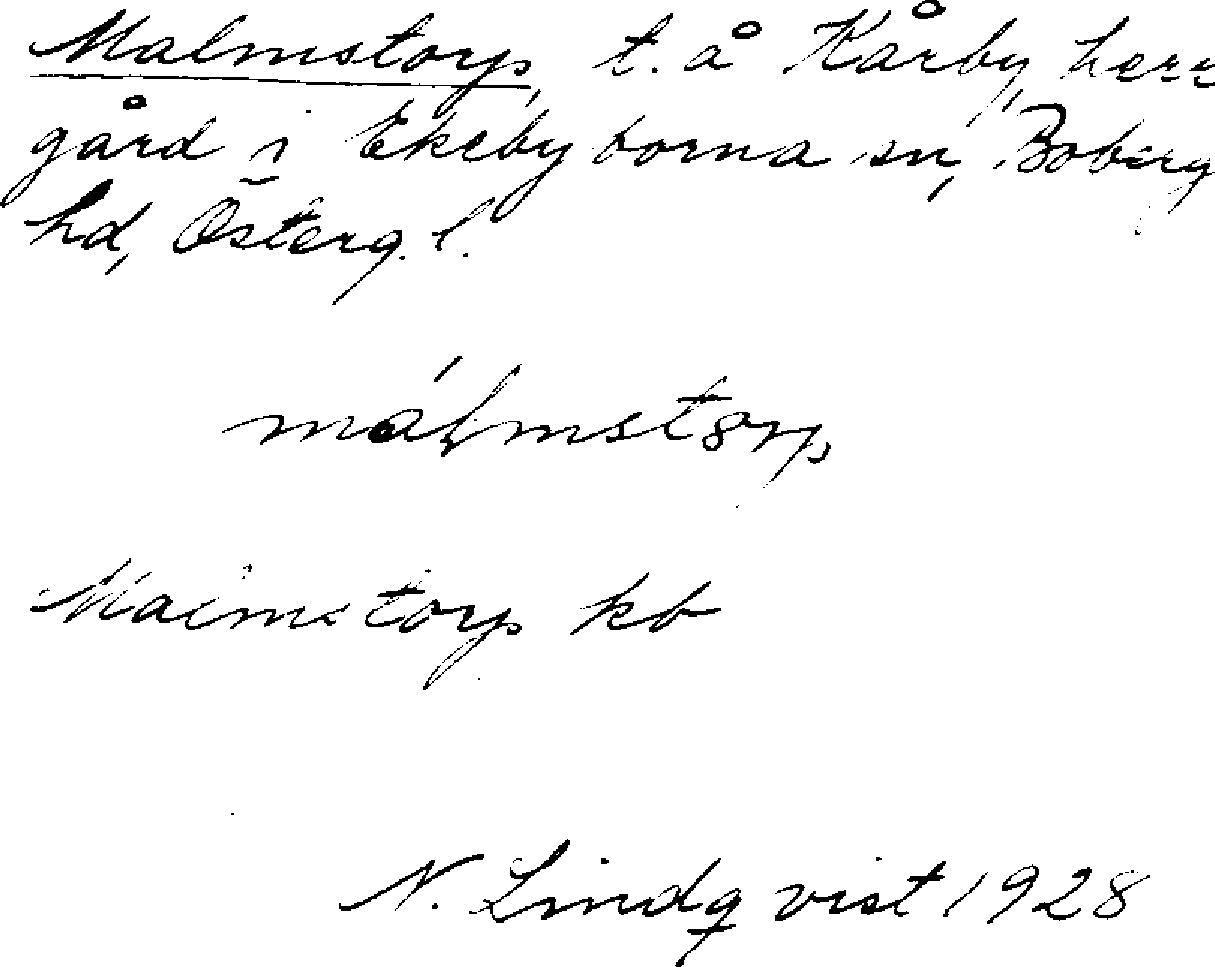 Malmstorp, t. å Kårby, herr
gård i Ekebyborna sn, Boberg
hd, Österg. l.
málmstorp
Malmstorp kb
N. Lindqvist 1928